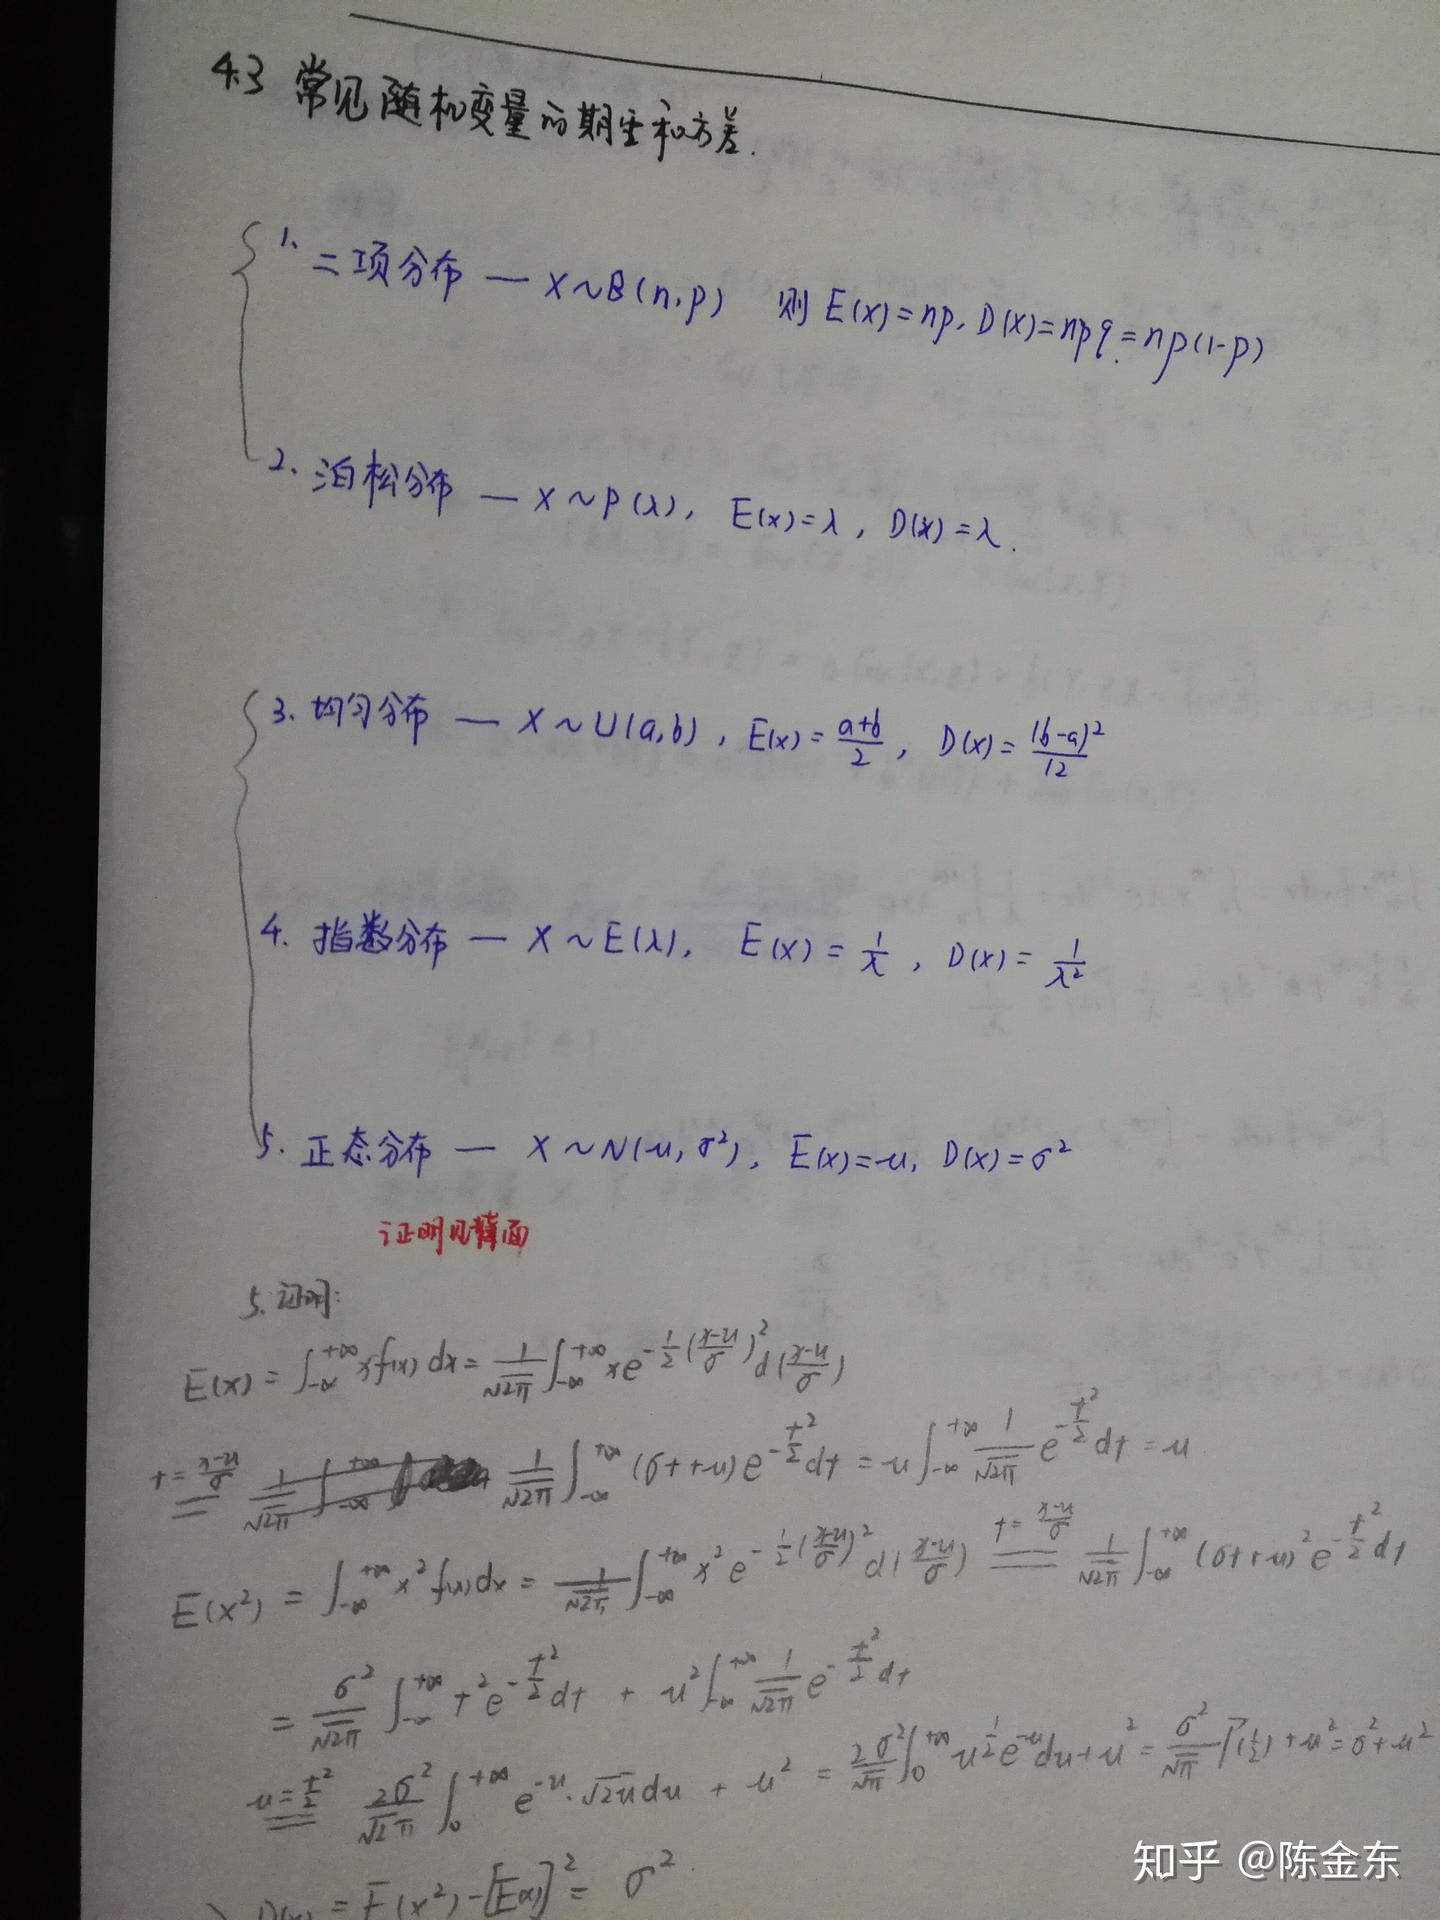 4.3 常见随机变量的期望和方差.
1、二项分布 — X~B(n,p) 则 E(X)=np, D(X)=npq=np(1-p)
2、泊松分布 — X~P(λ), E(X)=λ, D(X)=λ.
3、均匀分布 — X~U(a,b), E(X)=\frac{a+b}{2}, D(X)=\frac{(b-a)^2}{12}
4、指数分布 — X~E(λ), E(X)=\frac{1}{λ}, D(X)=\frac{1}{λ^2}
5、正态分布 — X~N(μ,σ^2), E(X)=μ, D(X)=σ^2
证明见背面
5.证明:
E(X)=∫_{-∞}^{+∞}xf(x)dx=\frac{1}{\sqrt{2π}}∫_{-∞}^{+∞}xe^{-\frac{1}{2}(\frac{x-μ}{σ})^2}d(\frac{x-μ}{σ})
\overset{t=\frac{x-μ}{σ}}{=} \frac{1}{\sqrt{2π}}∫_{-∞}^{+∞}(σt+μ)e^{-\frac{t^2}{2}}dt=μ∫_{-∞}^{+∞}\frac{1}{\sqrt{2π}}e^{-\frac{t^2}{2}}dt=μ
E(X^2)=∫_{-∞}^{+∞}x^2f(x)dx=\frac{1}{\sqrt{2π}}∫_{-∞}^{+∞}x^2e^{-\frac{1}{2}(\frac{x-μ}{σ})^2}d(\frac{x-μ}{σ}) \overset{t=\frac{x-μ}{σ}}{=} \frac{1}{\sqrt{2π}}∫_{-∞}^{+∞}(σt+μ)^2e^{-\frac{t^2}{2}}dt
=\frac{σ^2}{\sqrt{2π}}∫_{-∞}^{+∞}t^2e^{-\frac{t^2}{2}}dt+μ^2∫_{-∞}^{+∞}\frac{1}{\sqrt{2π}}e^{-\frac{t^2}{2}}dt
\overset{u=\frac{t^2}{2}}{=} \frac{2σ^2}{\sqrt{2π}}∫_{0}^{+∞}e^{-u}·\sqrt{2u}du+μ^2=\frac{2σ^2}{\sqrt{π}}∫_{0}^{+∞}u^{\frac{1}{2}}e^{-u}du+μ^2=\frac{σ^2}{\sqrt{π}}Γ(\frac{1}{2})+μ^2=σ^2+μ^2
D(X)=E(X^2)-[E(X)]^2=σ^2.
知乎 @陈金东